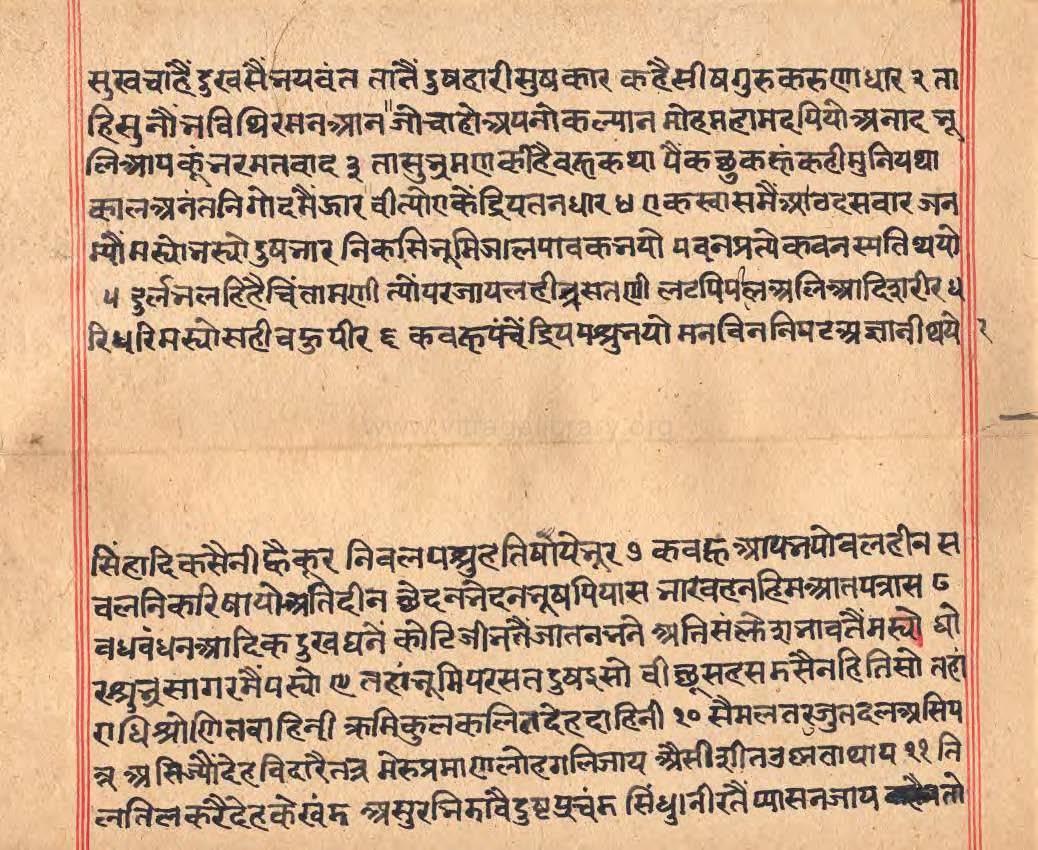 सुखचाहैंदुखसैंभयवंत तातैंदुषहारीसुषकार कहैसीषगुरुकरुणाधार २ ता
हिसुनौंभविथिरमनआन जोचाहोअपनोकल्यान मोहमहामदपियोअनाद भू
लिआपकूंभरमतवाद ३ तासुभ्रमणकीहैबहुकथा पैंकछुकहूंकहीमुनियथा
कालअनंतनिगोदमैंझार वीत्योएकेंद्रियतनधार ४ एकस्वासमैंआठदसवार जन
म्योंमस्योभस्योदुषभार निकसिभूमिजालपावकभयो पवनप्रत्येकवनस्पतिथयो
५ दुर्लभलहिहैचिंतामणी त्योंपरजायलहीत्रसतणी लटपिपीलअलिआदिशरीर ध
रिधरिमस्योसहीबहुपीर ६ कबहूपंचेंद्रियपशुभयो मनविननिपटअज्ञानीथयो
सिंहादिकसैनीह्वैकूर निबलपशुहतिषायेभूर ७ कबहूआपभयोबलहीन स
बलनिकरिषायोअतिदीन छेदनभेदनभूषपियास भारवहनहिमआतपत्रास ८
बधबंधनआदिकदुखघनें कोटिजीभतैंजातनभनें अतिसंक्लेशभावतैंमस्यो घो
रशुभ्रसागरमैंपस्यो ९ तहांभूमिपरसतदुषइसो बीछूसहसडसैनहितिसो तहां
राधिश्रोणितवाहिनी क्रमिकुलकलितदेहदाहिनी १० सैमलतरुजुतदलअसिप
त्र असिज्यौंदेहविदारैतत्र मेरुप्रमाणलोहगलिजाय अैसीशीतउष्नताथाय ११ ति
लतिलकरैदेहकेखंड असुरभिडावैदुष्टप्रचंड सिंधुनीरतैंप्यासनजाय तो
www.vitragalibrary.org